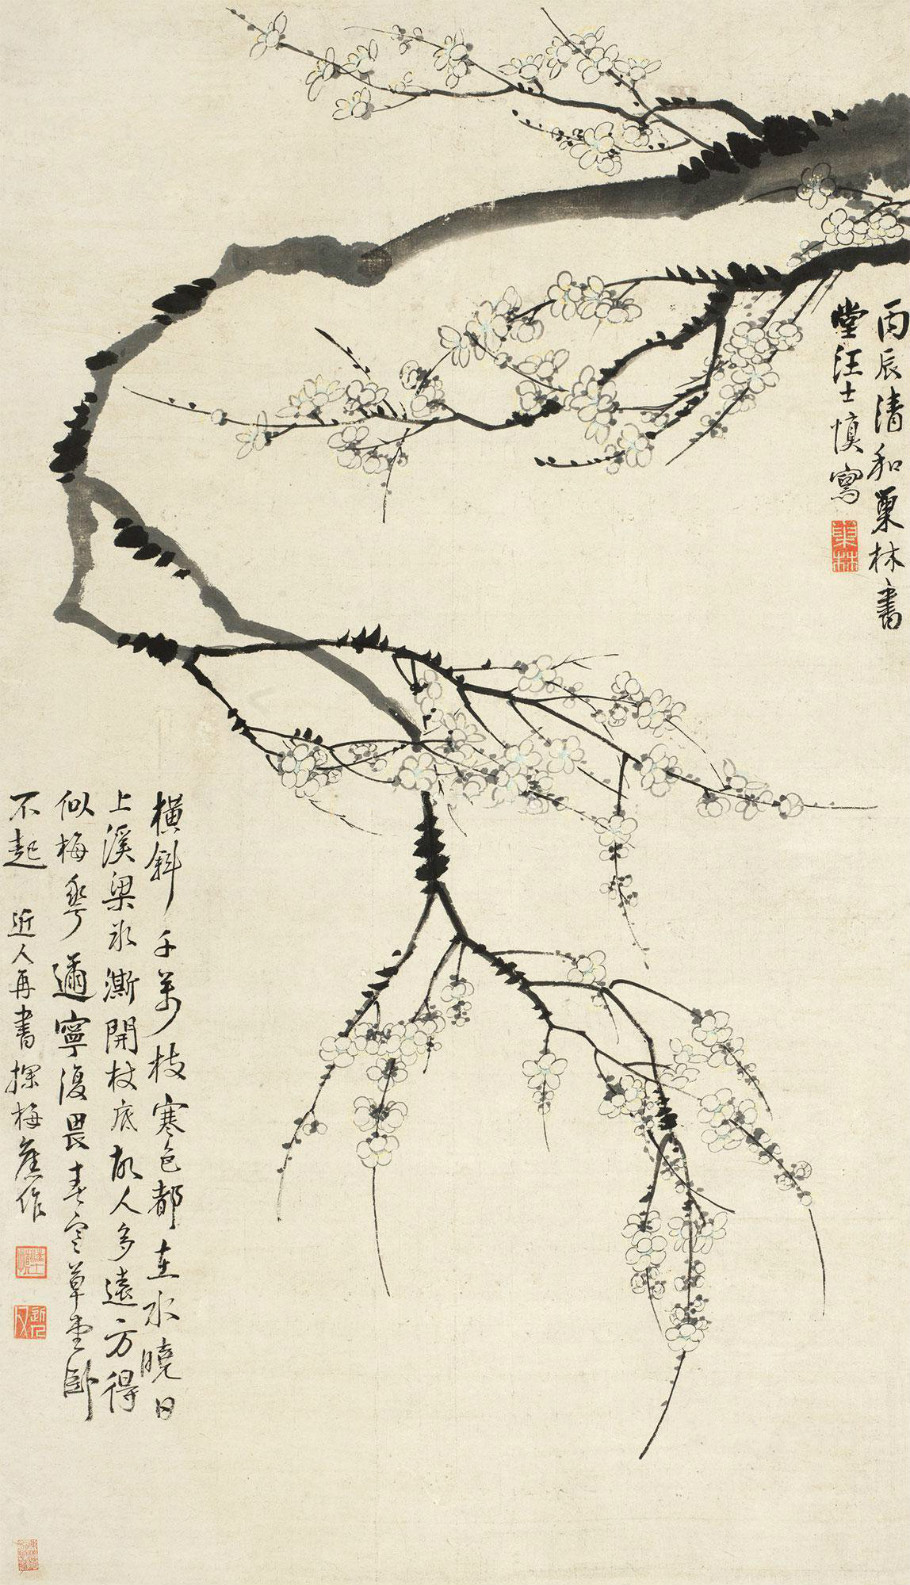 丙辰清和巢林書
堂汪士慎寫
巢林
橫斜千萬枝寒色都在水曉日
上溪梁氷澌開杖底故人多遠方得
似梅花邇寧復畏春寒草堂臥
不起 近人再書探梅舊作